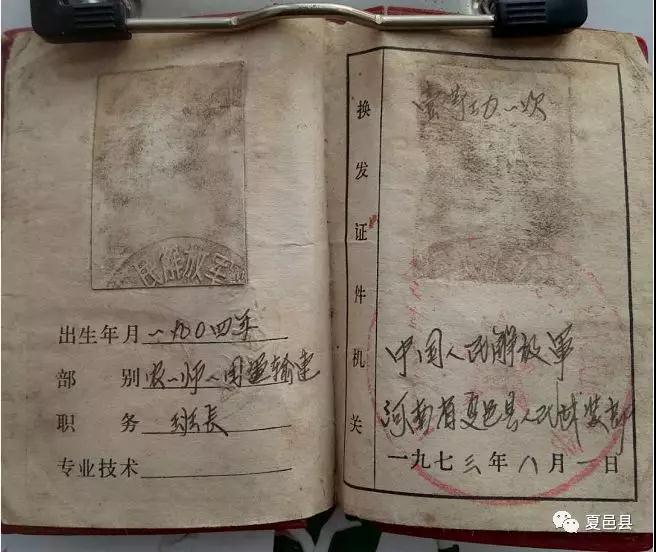 民解放军
出生年月 一九〇四年
部别 农一师一团运输连
职务 班长
专业技术
换发证件机关
功一次
中国人民解放军
河南省夏邑县人民武装部
一九七三年八月一日
夏邑县